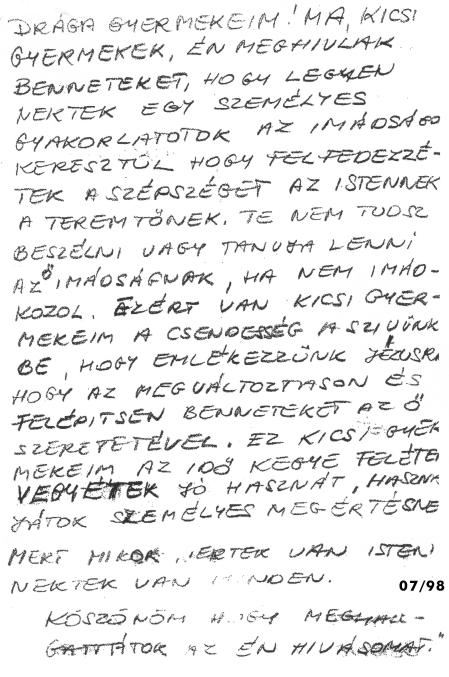 DRÁGA GYERMEKEIM! MA, KICSI
GYERMEKEK, ÉN MEGHIVLAK
BENNETEKET, HOGY LEGYEN
NEKTEK EGY SZEMÉLYES
GYAKORLATOTOK AZ IMÁDSÁGO
KERESZTÜL HOGY FELFEDEZZÉ-
TEK A SZÉPSZÉGET AZ ISTENNEK
A TEREMTŐNEK. TE NEM TUDSZ
BESZÉLNI VAGY TANUJA LENNI
AZ Ő IMÁDSÁGNAK, HA NEM IMÁD-
KOZOL. EZÉRT VAN KICSI GYER-
MEKEIM A CSENDESSÉG A SZIVÜNK
BE, HOGY EMLÉKEZZÜNK JÉZUSRA
HOGY AZ MEGVÁLTOZTASSON ÉS
FELÉPITSEN BENNETEKET AZ Ő
SZERETETÉVEL. EZ KICSI GYER
MEKEIM AZ IDŐ KEGYE FELÉTE
VEGYÉTEK JÓ HASZNÁT, HASZN
JÁTOK SZEMÉLYES MEGÉRTÉSNE
MERT MIKOR ISTEN
NEKTEK VAN MINDEN.
07/98
KÖSZÖNÖM HOGY MEGHALL-
GATTÁTOK AZ ÉN HIVÁSOMAT."